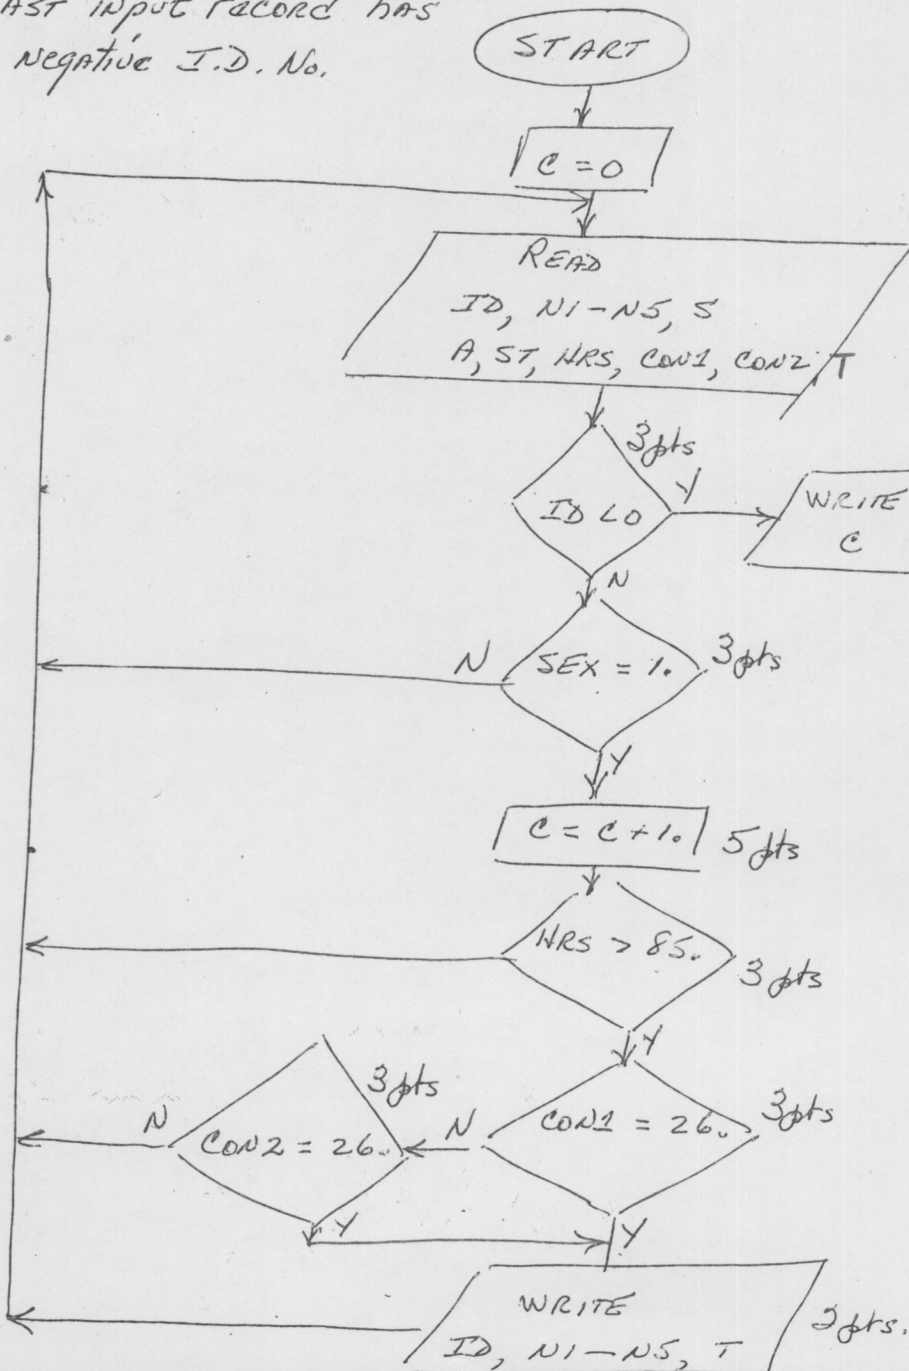 AST input record has
negative I.D. No.
START
C = 0
READ
ID, N1-N5, S
A, ST, HRS, CON1, CON2, T
3 pts
ID < 0
Y
WRITE
C
N
SEX = 1.
N
3 pts
Y
C = C + 1.
5 pts
HRS > 85.
3 pts
Y
CON1 = 26.
3 pts
N
3 pts
CON2 = 26.
N
Y
Y
WRITE
ID, N1-N5, T
2 pts.